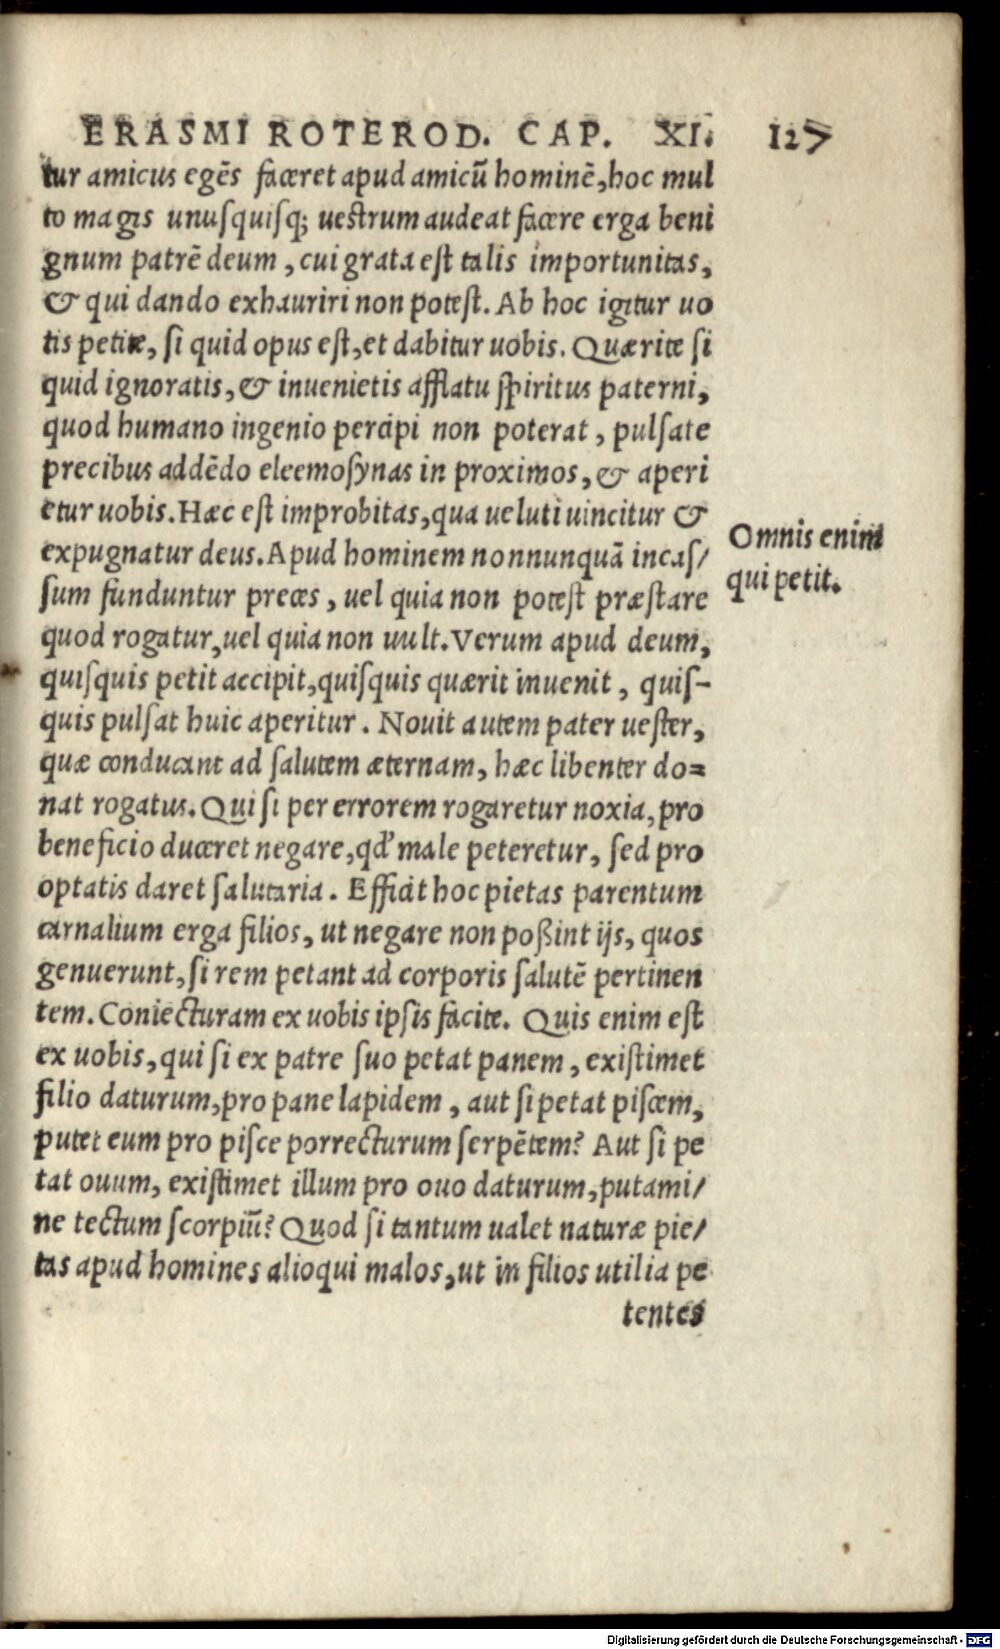 ERASMI ROTEROD. CAP. XI. 127
tur amicus egēs faceret apud amicū hominē, hoc mul
to magis unuſquiſq; ueſtrum audeat facere erga beni
gnum patrē deum, cui grata eſt talis importunitas,
& qui dando exhauriri non poteſt. Ab hoc igitur uo
tis petite, ſi quid opus eſt, et dabitur uobis. Quærite ſi
quid ignoratis, & inuenietis afflatu ſpiritus paterni,
quod humano ingenio percipi non poterat, pulſate
precibus addēdo eleemoſynas in proximos, & aperi
etur uobis. Hæc eſt improbitas, qua ueluti uincitur &
expugnatur deus. Apud hominem nonnunquā incaſ/
ſum funduntur preces, uel quia non poteſt præſtare
quod rogatur, uel quia non uult. Verum apud deum,
quiſquis petit accipit, quiſquis quærit inuenit, quiſ-
quis pulſat huic aperitur. Nouit autem pater ueſter,
quæ conducant ad ſalutem æternam, hæc libenter do=
nat rogatus. Qui ſi per errorem rogaretur noxia, pro
beneficio duceret negare, qd' male peteretur, ſed pro
optatis daret ſalutaria. Efficit hoc pietas parentum
carnalium erga filios, ut negare non poßint ijs, quos
genuerunt, ſi rem petant ad corporis ſalutē pertinen
tem. Coniecturam ex uobis ipſis facite. Quis enim eſt
ex uobis, qui ſi ex patre ſuo petat panem, exiſtimet
filio daturum, pro pane lapidem, aut ſi petat piſcem,
putet eum pro piſce porrecturum ſerpētem? Aut ſi pe
tat ouum, exiſtimet illum pro ouo daturum, putami/
ne tectum ſcorpiū? Quod ſi tantum ualet naturæ pie/
tas apud homines alioqui malos, ut in filios utilia pe
tentes
Omnis enim
qui petit.
Digitalisierung gefördert durch die Deutsche Forschungsgemeinschaft - DFG